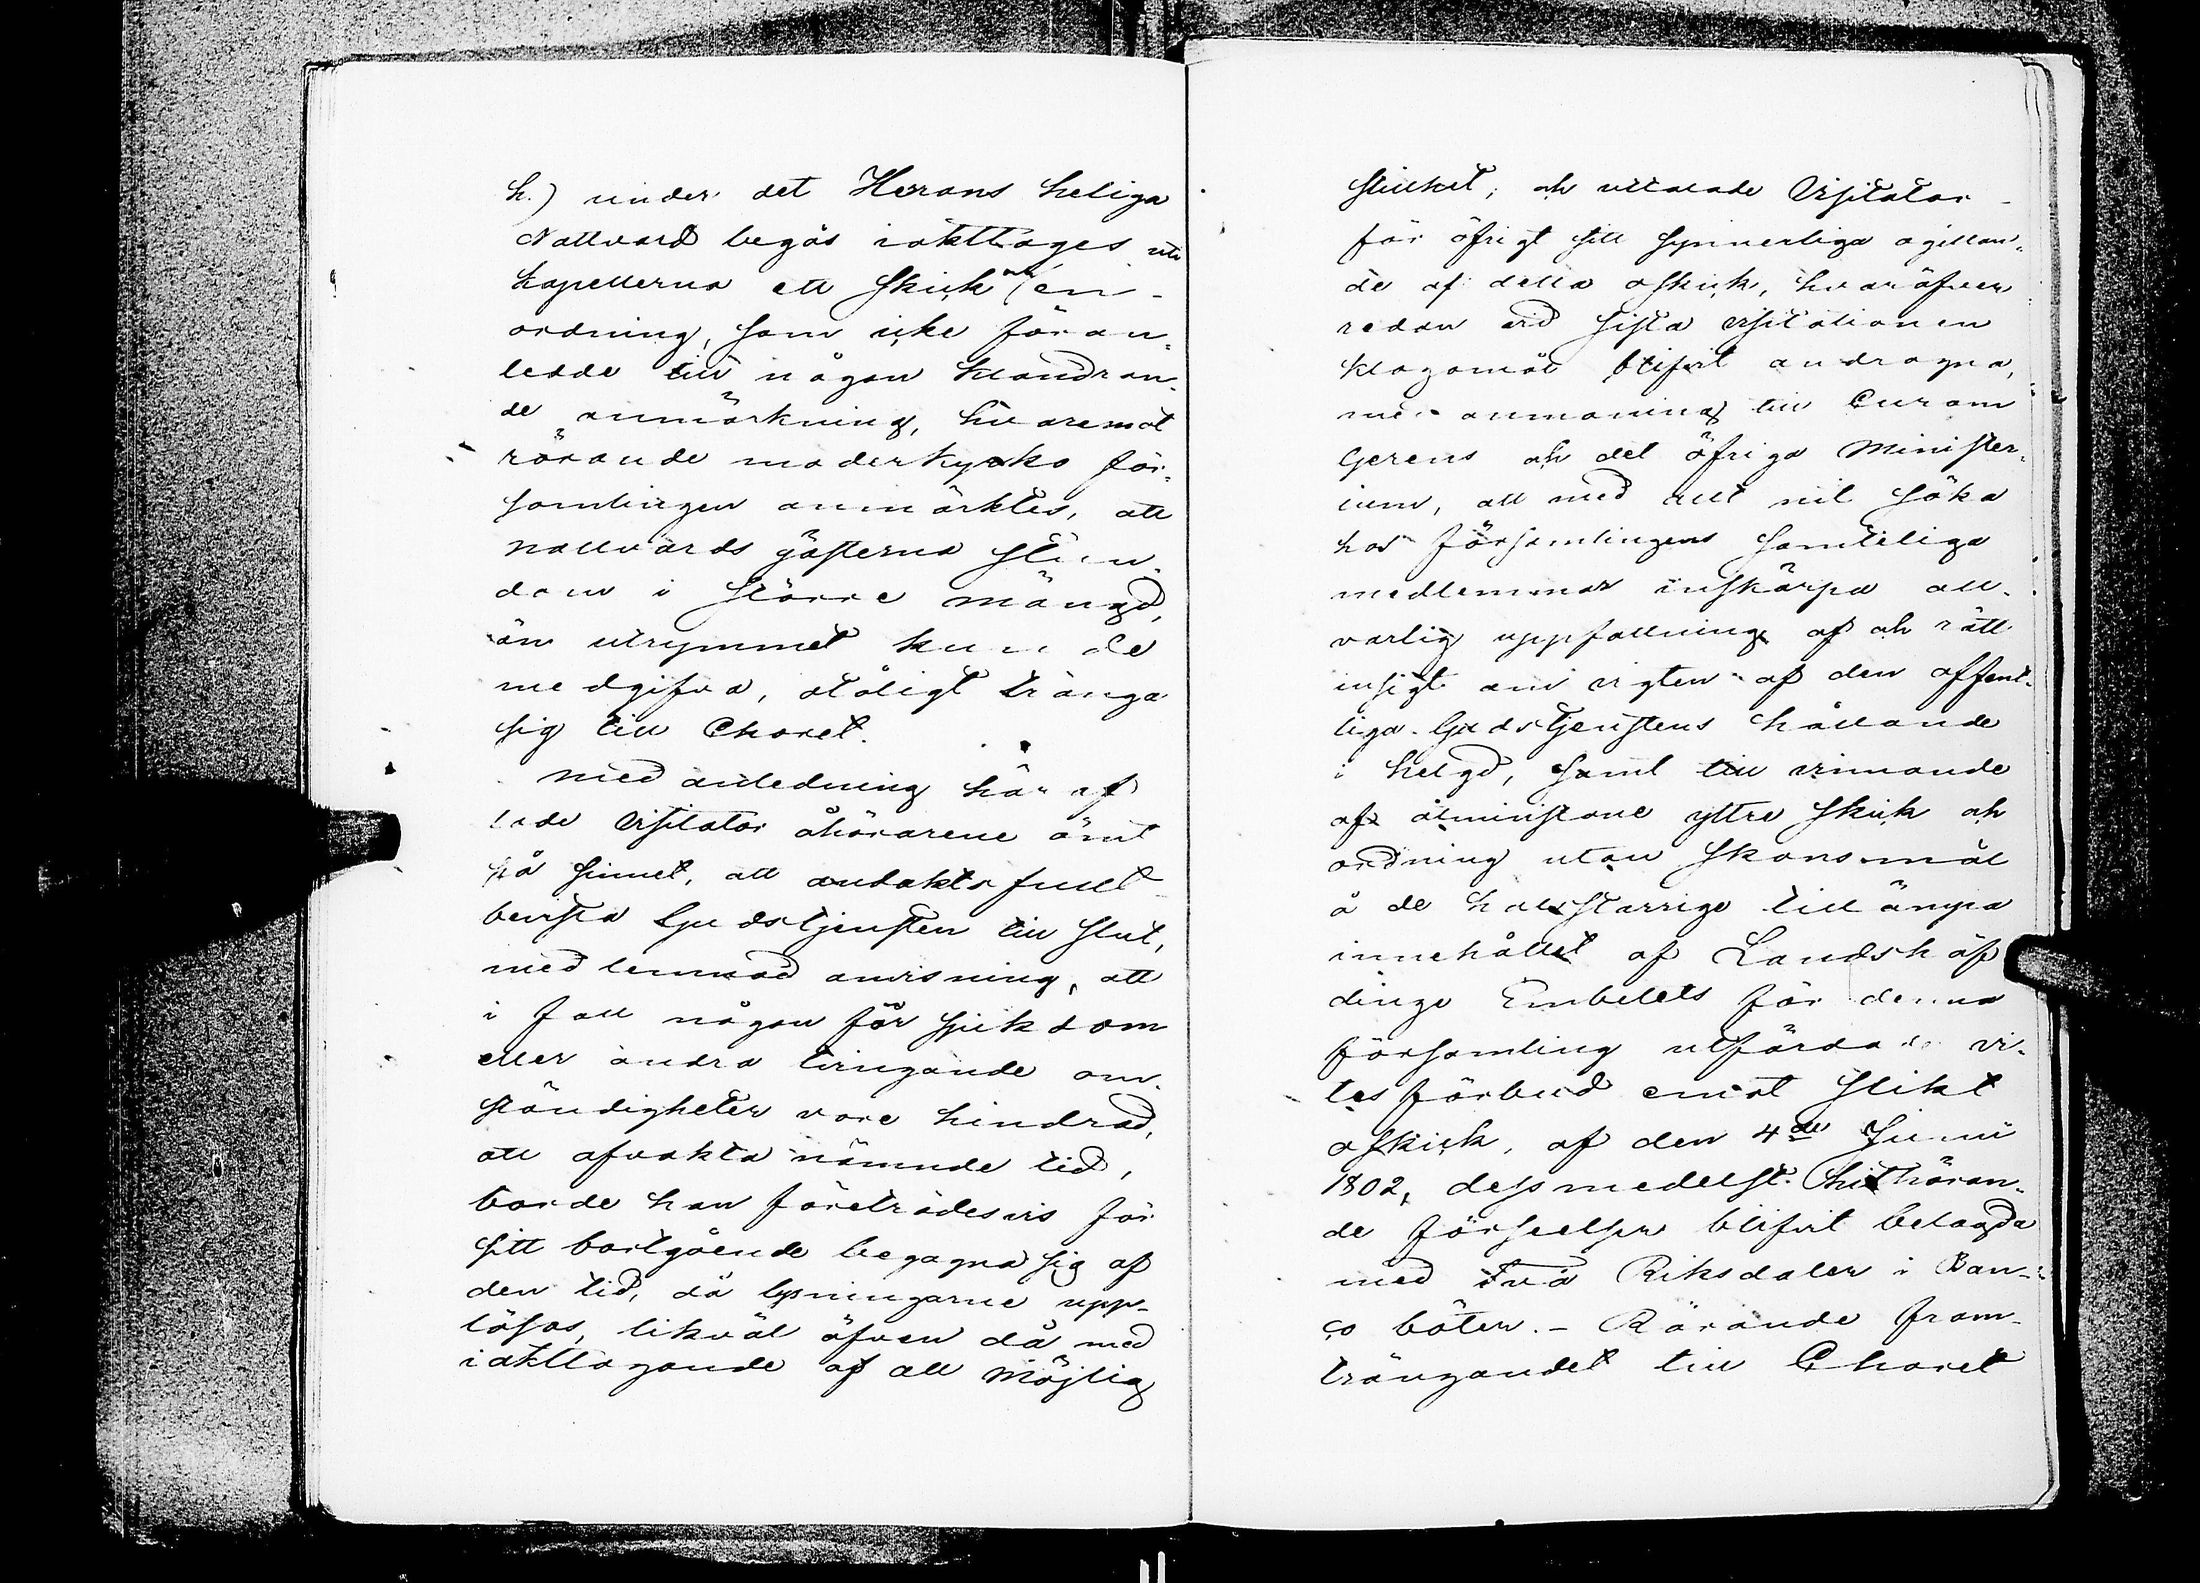 h.) under det Herrans heliga
Nattvard begås iakttages uti
kapellerna ett skick och en
ordning, som icke föran-
ledde till någon klandran-
de anmärkning, hvaremot
rörande moderkyrko för-
samlingen anmärktes, att
nattvards gästerna stun-
dom i större mängd,
än utrymmet kunde
medgifva, otåligt tränga
sig till Choret.
med anledning häraf
lade Visitator åhörarene ömt
på sinnet, att andaktsfullt
bevista Gudstjensten till slut,
med lemnad anvisning, att
i fall någon för sjukdom
eller andra tvingande om-
ständigheter vore hindrad,
att afvakta nämnde tid,
borde han företrädesvis för
sitt bortgående begagna sig af
den tid, då lysningarne upp-
läsas, likväl äfven då med
iakttagande af all möjlig
stillhet; och uttalade Visitator
för öfrigt sitt synnerliga ogillan-
de af detta oskick, hvaröfver
redan vid sista visitationen
klagomål blifvit andragna,
med anmaning till Curam
Gerens och det öfriga Minister-
ium, att med allt nit söka
hos församlingens samteliga
medlemmar inskärpa all-
varlig uppfattning af och rätt
insigt om vigten af den offent-
liga Gudstjenstens hållande
i helgd, samt till vinnande
af åtminstone yttre skick och
ordning utan skonsmål
å de halsstarrige tillämpa
innehållet af Landshöf
dinge Embetets för denna
församling utfärdade vi-
tesförbud emot slikt
oskick, af den 4de Junii
1802, dessmedelst hithöran-
de förseelser blifvit belagda
med Två Riksdaler i Ban-
co böter. - Rörande fram-
trängandet till Choret